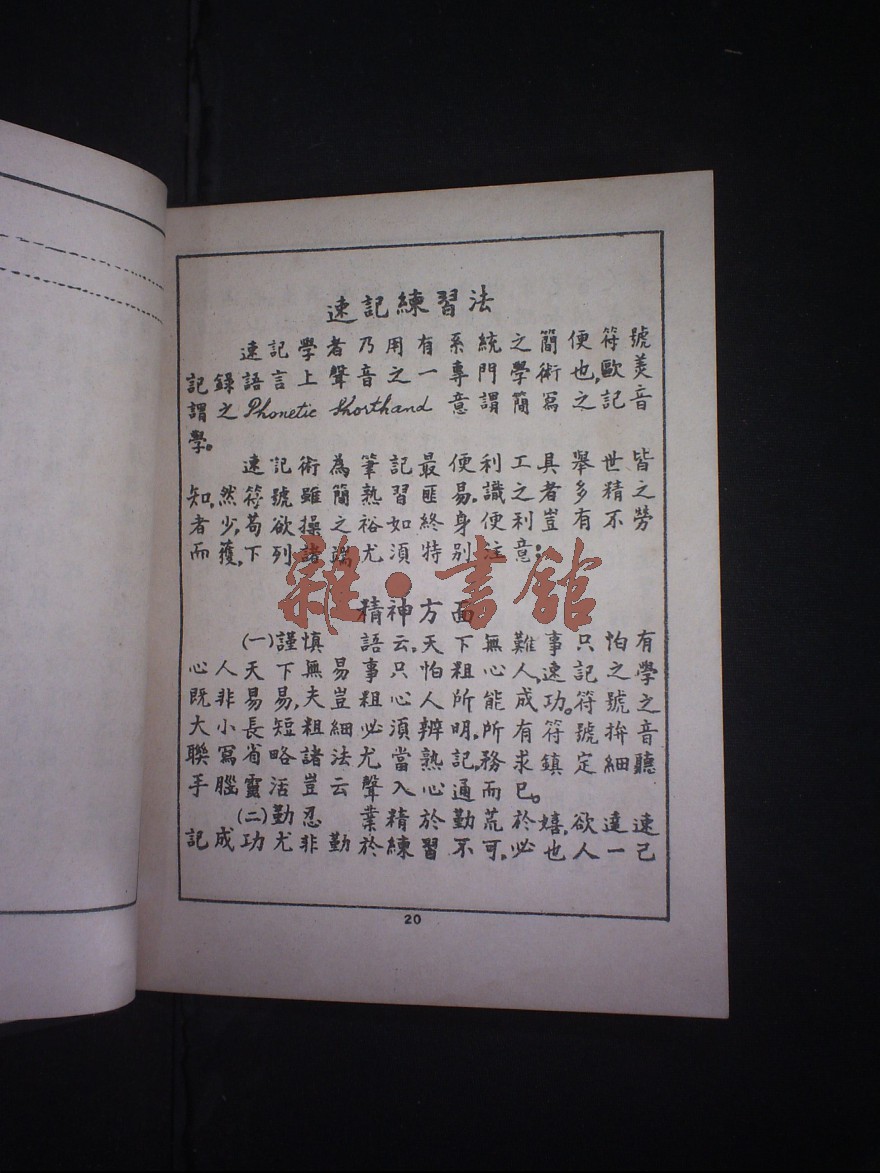 速記練習法
速記學者乃用有系統之簡便符號
記錄語言上聲音之一專門學術也,歐美
謂之 Phonetic Shorthand 意謂簡寫之記音
學。
速記術為筆記最便利工具舉世皆
知,然符號雖簡熟習匪易.識之者多精之
者少,苟欲操之裕如終身便利豈有不勞
而獲,下列諸端尤須特別注意:
精神方面
(一)謹慎 語云.天下無難事只怕有
心人天下無易事只怕粗心人,速記之學
既非易易,夫豈粗心人所能成功。符號之
大小長短粗細必須辨明,所有符號拚音
聯寫省略諸法尤當熟記,務求鎮定細聽
手腦靈活豈云聲入心通而已。
(二)勤忍 業精於勤荒於嬉,欲達速
記成功尤非勤於練習不可,必也人一己
20
雜·書館